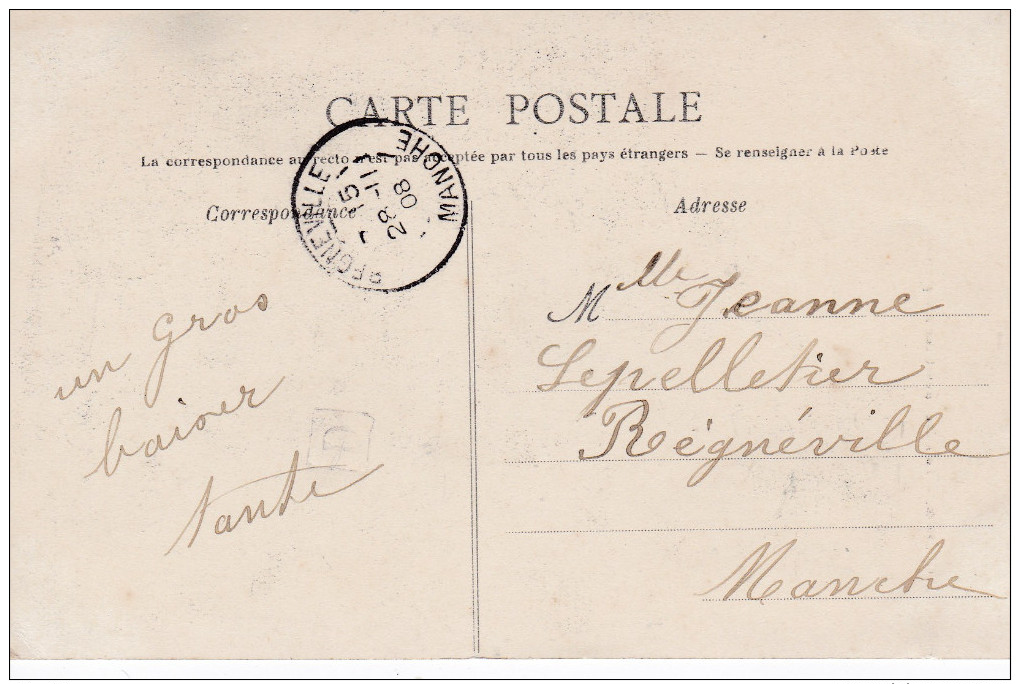 CARTE POSTALE
La correspondance au recto n'est pas acceptée par tous les pays étrangers — Se renseigner à la Poste
Correspondance
Adresse
REGNEVILLE
MANCHE
15
28 -11
08
un gros
baiser
tante
Mlle Jeanne
Lepelletier
Régnéville
Manche